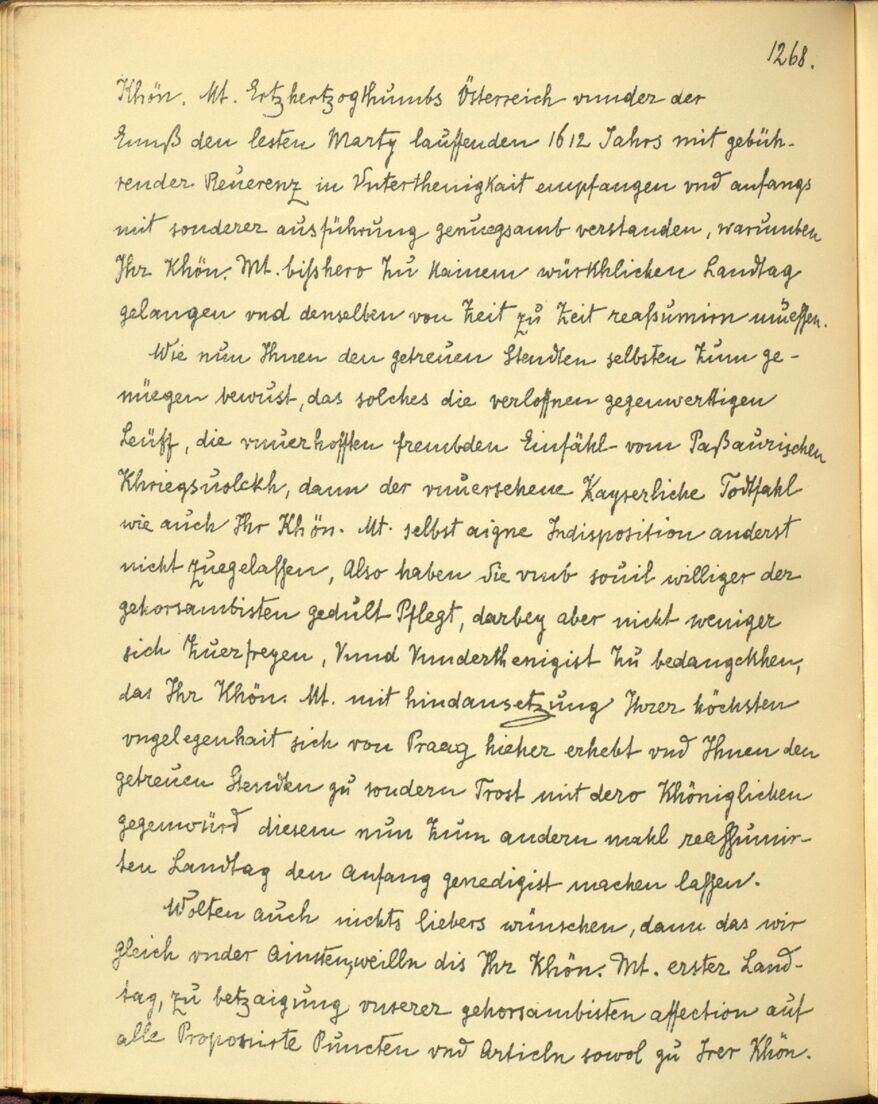 1268.
Khön. Mt. Ertzhertzogthumbs Österreich vunder der
Ennß den lesten Marty lauffenden 1612 Jahrs mit gebüh-
render Reuerenz in Vnterthenigkait empfangen vnd anfangs
mit sonderer ausführung genuegsamb verstanden, warumben
Ihr Khön. Mt. bißhero zu kainem würkhlichen Landtag
gelangen vnd denselben von Zeit zu Zeit reassumirn müessen.
Wie nun Ihnen den getreuen Stendten selbsten zum ge-
nüegen bewust, das solches die verloffnen gegenwerttigen
Leüff, die vnuerhofften frembden Einfähl vom Paßaurischen
Khriegsuolckh, dann der vnuersehene Kayserliche Todtfahl
wie auch Ihr Khön. Mt. selbst aigne Indisposition anderst
nicht zuegelassen, Also haben Sie vmb souil williger der
gehorsambisten gedult Pflegt, darbey aber nicht weniger
sich zuerfreyen, Vnnd Vnnderthenigist zu bedangckhen,
das Ihr Khön. Mt. mit hindansetzung Ihrer höchsten
vngelegenhait sich von Praag hieher erhebt vnd Ihnen den
getreuen Stendten zu sondern Trost mit dero Khöniglichen
gegenwürd diesem nun zum andern mahl reassumir-
ten Landtag den Anfang genedigist machen lassen.
Wolten auch nichts liebers wünschen, dann das wir
gleich vnder Ainsten, weilln dis Ihr Khön. Mt. erster Land-
tag, zu betzaigung vnserer gehorsambisten affection auf
alle Proponirte Puncten vnd Articln sowol zu Irer Khön.